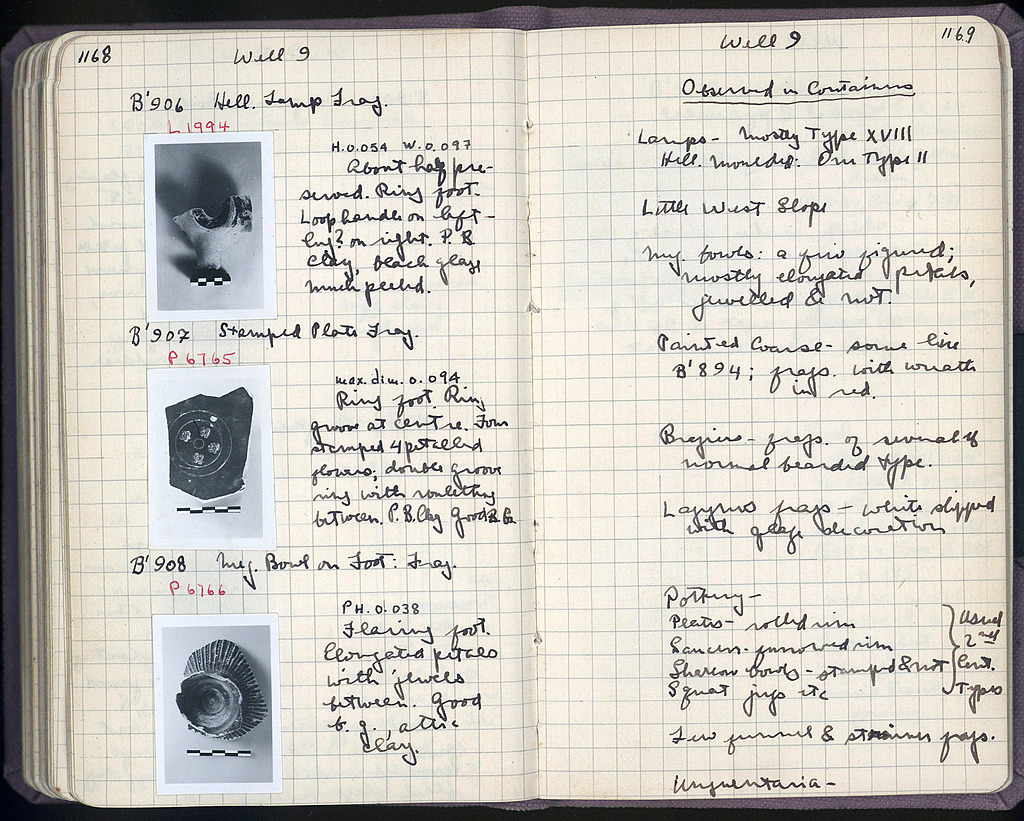 1168
Well 9
B'906 Hell. Lamp Frag.
L 1994
H. 0.054 W. 0.097
About half pre-
served. Ring foot.
Loop handle on left -
lug? on right. P. B.
clay, black glaze
much peeled.
B'907 Stamped Plate Frag.
P 6765
max. dim. 0.094
Ring foot Ring
groove at centre. Four
stamped 4 petalled
flowers; double groove
ring with rouletting
between. P. B. Clay Good
B'908 Meg. Bowl on Foot: Frag.
P 6766
PH. 0.038
Flaring foot.
Elongated petals
with jewels
between. Good
b. g., attic
clay.
1169
Well 9
Observed in Containers
Lamps - Mostly Type XVIII
Hell. moulded. One Type II
Little West Slope
Meg. bowls: a few figured;
mostly elongated petals,
jewelled & not.
Painted Coarse - some like
B'894; frags. with wreath
in red.
Braziers - frags. of several of
normal bearded type.
Lagynos frags - white slipped
with glaze decoration
Pottery -
Plates - rolled rim
Saucers - furrowed rim
Shallow bowls - stamped & not
Squat jugs etc
Usual
2nd
Cent.
Types
Few funnel & strainer frags.
Unguentaria -